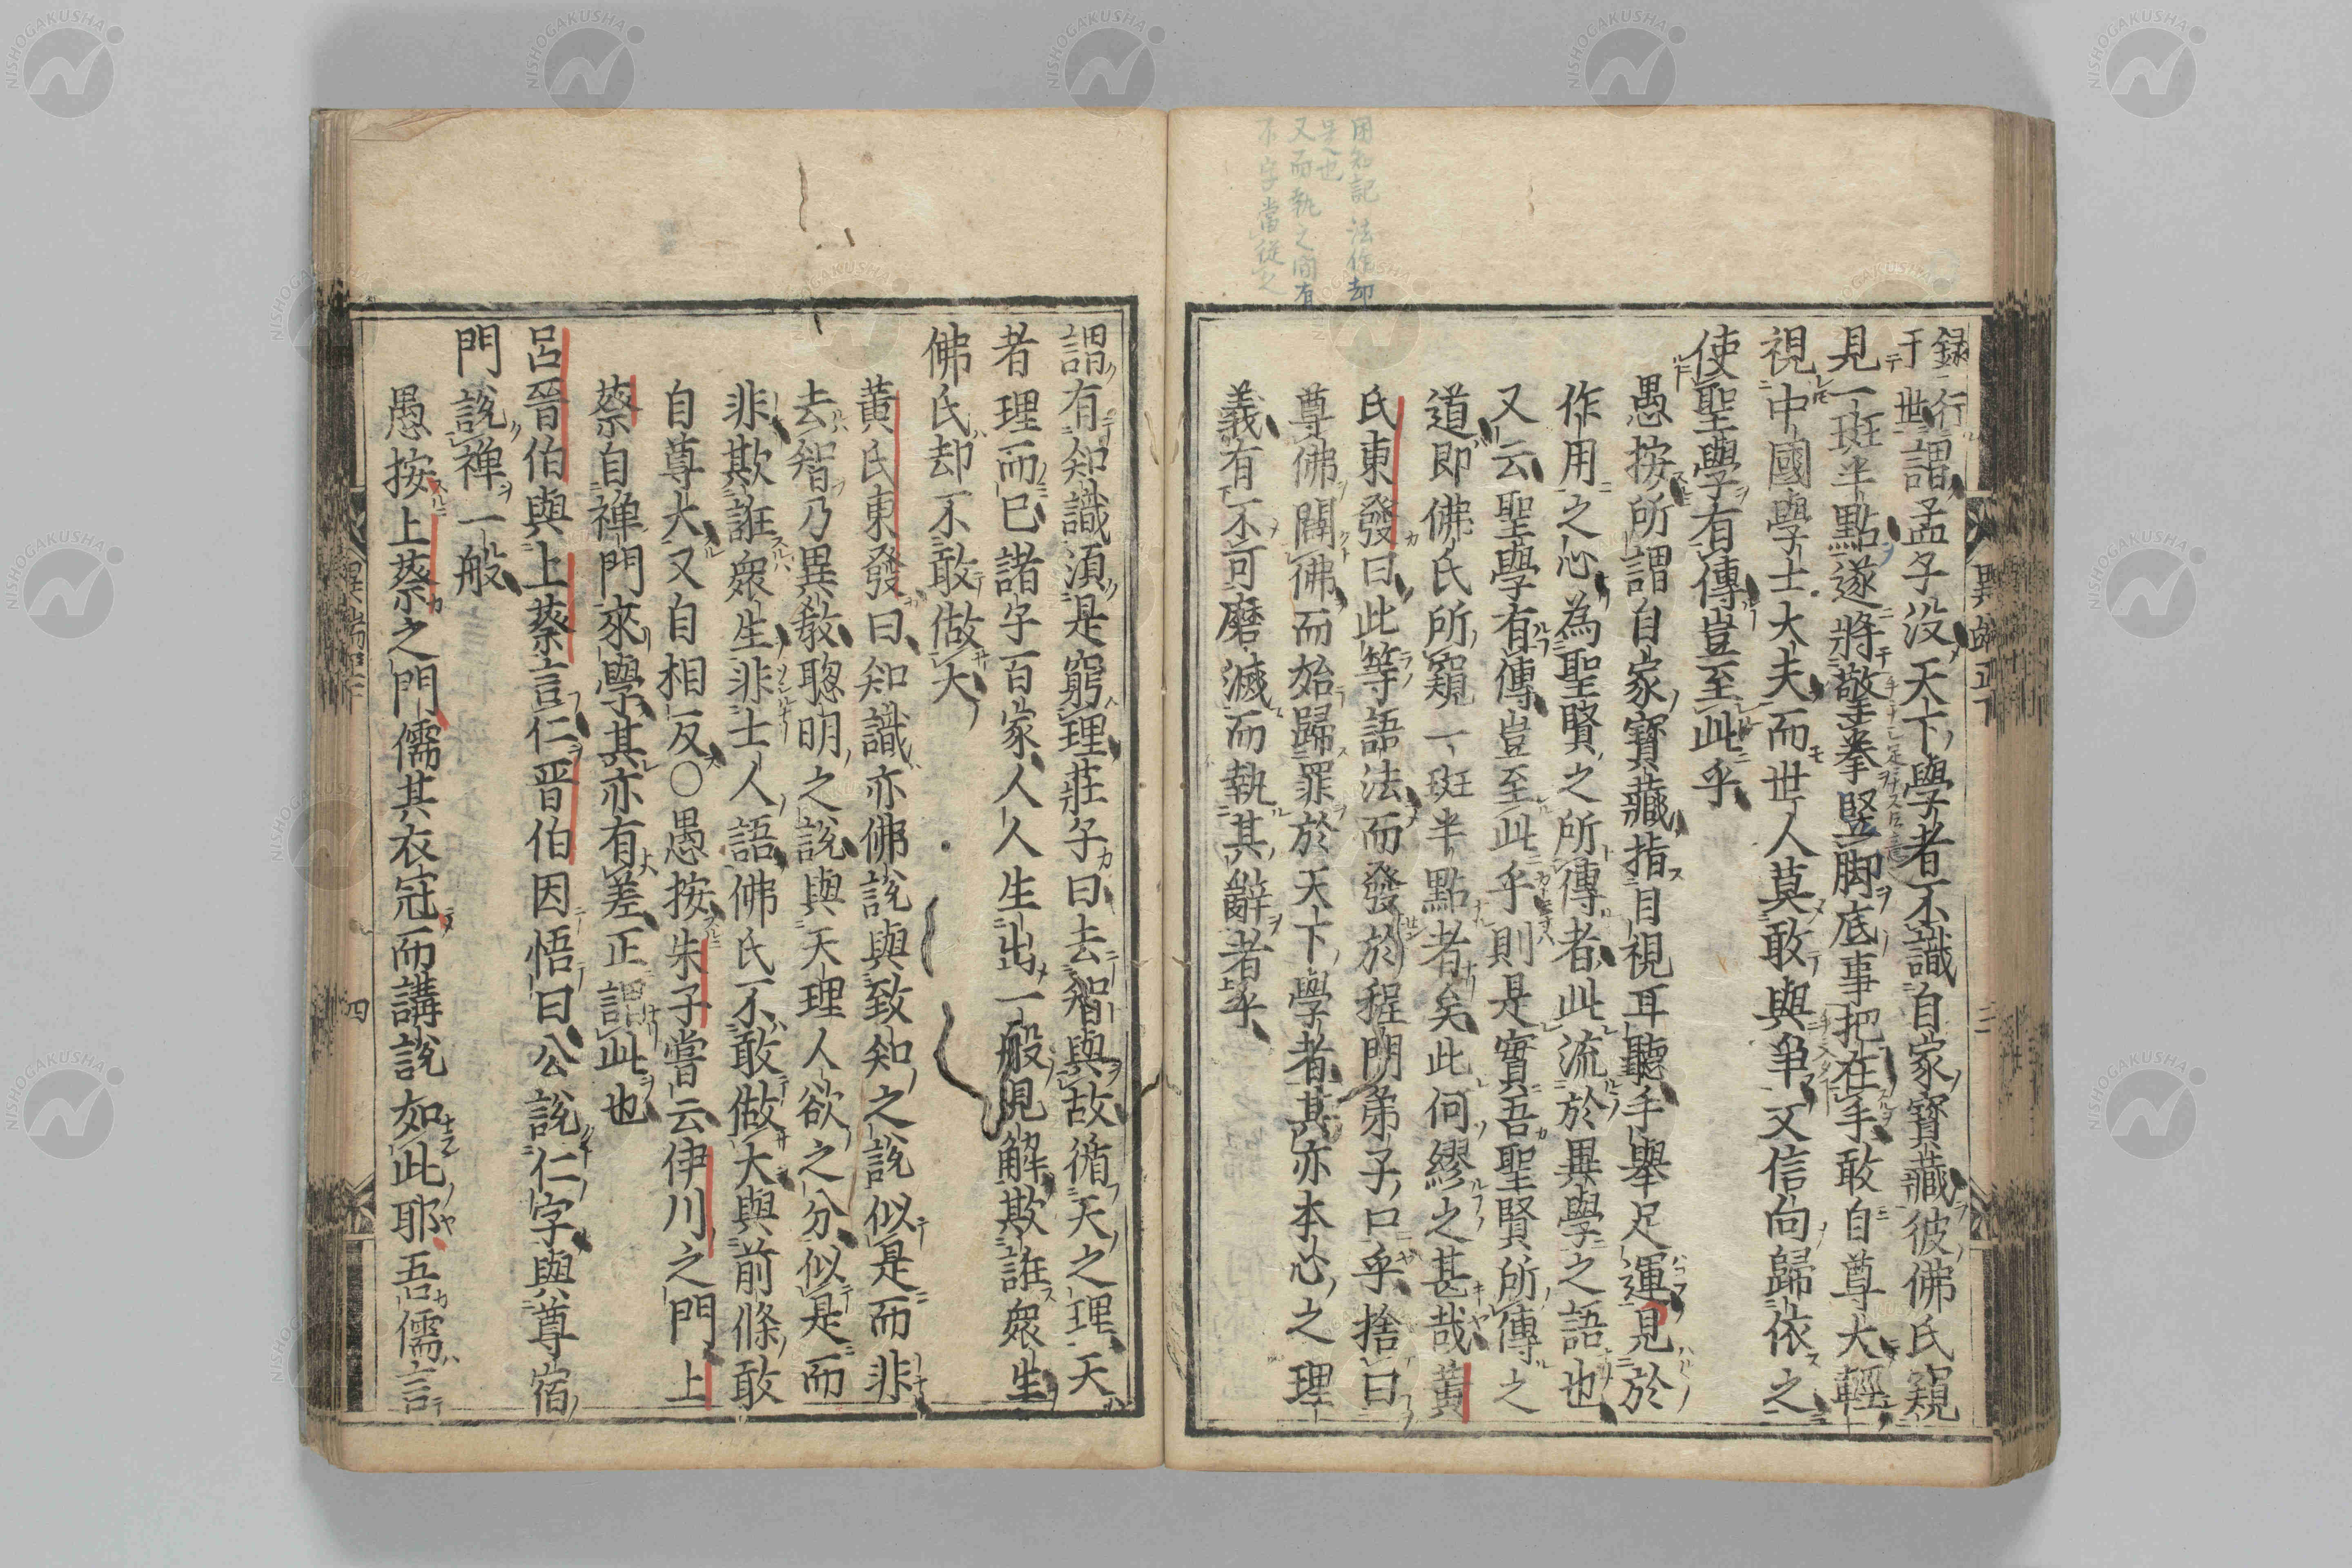 困知記 法作却
是也
又而執之間有
不字當從之
錄行
于世謂孟子没天下學者不識自家寳藏彼佛氏窺
見一斑半點遂將擎拳竪脚底事把在手敢自尊大輕
視中國學士大夫而世人莫敢與爭又信向歸依之
使聖學有傳豈至此乎
愚按所謂自家寳藏指目視耳聽手舉足運見於
作用之心為聖賢之所傳者此流於異學之語也
又云聖學有傳豈至此乎則是實吾聖賢所傳之
道即佛氏所窺一斑半點者矣此何繆之甚哉黄
氏東發曰此等語法而發於程門弟子口乎捨曰
尊佛闢佛而始歸罪於天下學者其亦本心之理
義有不可磨滅而執其辭者乎
異端正下
三
謂有知識湏是窮理莊子曰去智與故循天之理天
者理而已諸子百家人人生出一般見解欺誑衆生
佛氏却不敢做大
黄氏東發曰知識亦佛說與致知之說似是而非
去智乃異敎聰明之說與天理人欲之分似是而
非欺誑衆生非士人語佛氏不敢做大與前條敢
自尊大又自相反〇愚按朱子嘗云伊川之門上
蔡自禅門來學其亦有差正謂此也
呂晉伯與上蔡言仁晉伯因悟曰公說仁字與尊宿
門說禅一般
愚按上蔡之門儒其衣冠而講說如此耶吾儒言
四